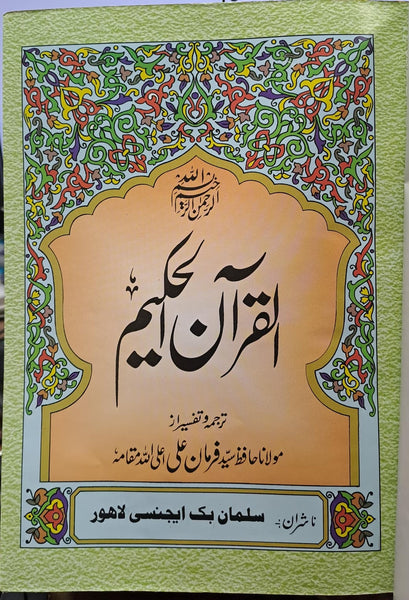 بسم اللہ
الرحمن الرحیم
القرآن الحکیم
ترجمہ و تفسیر از
مولانا حافظ سید فرمان علی اعلی اللہ مقامہ
ناشران :- سلمان بک ایجنسی لاہور